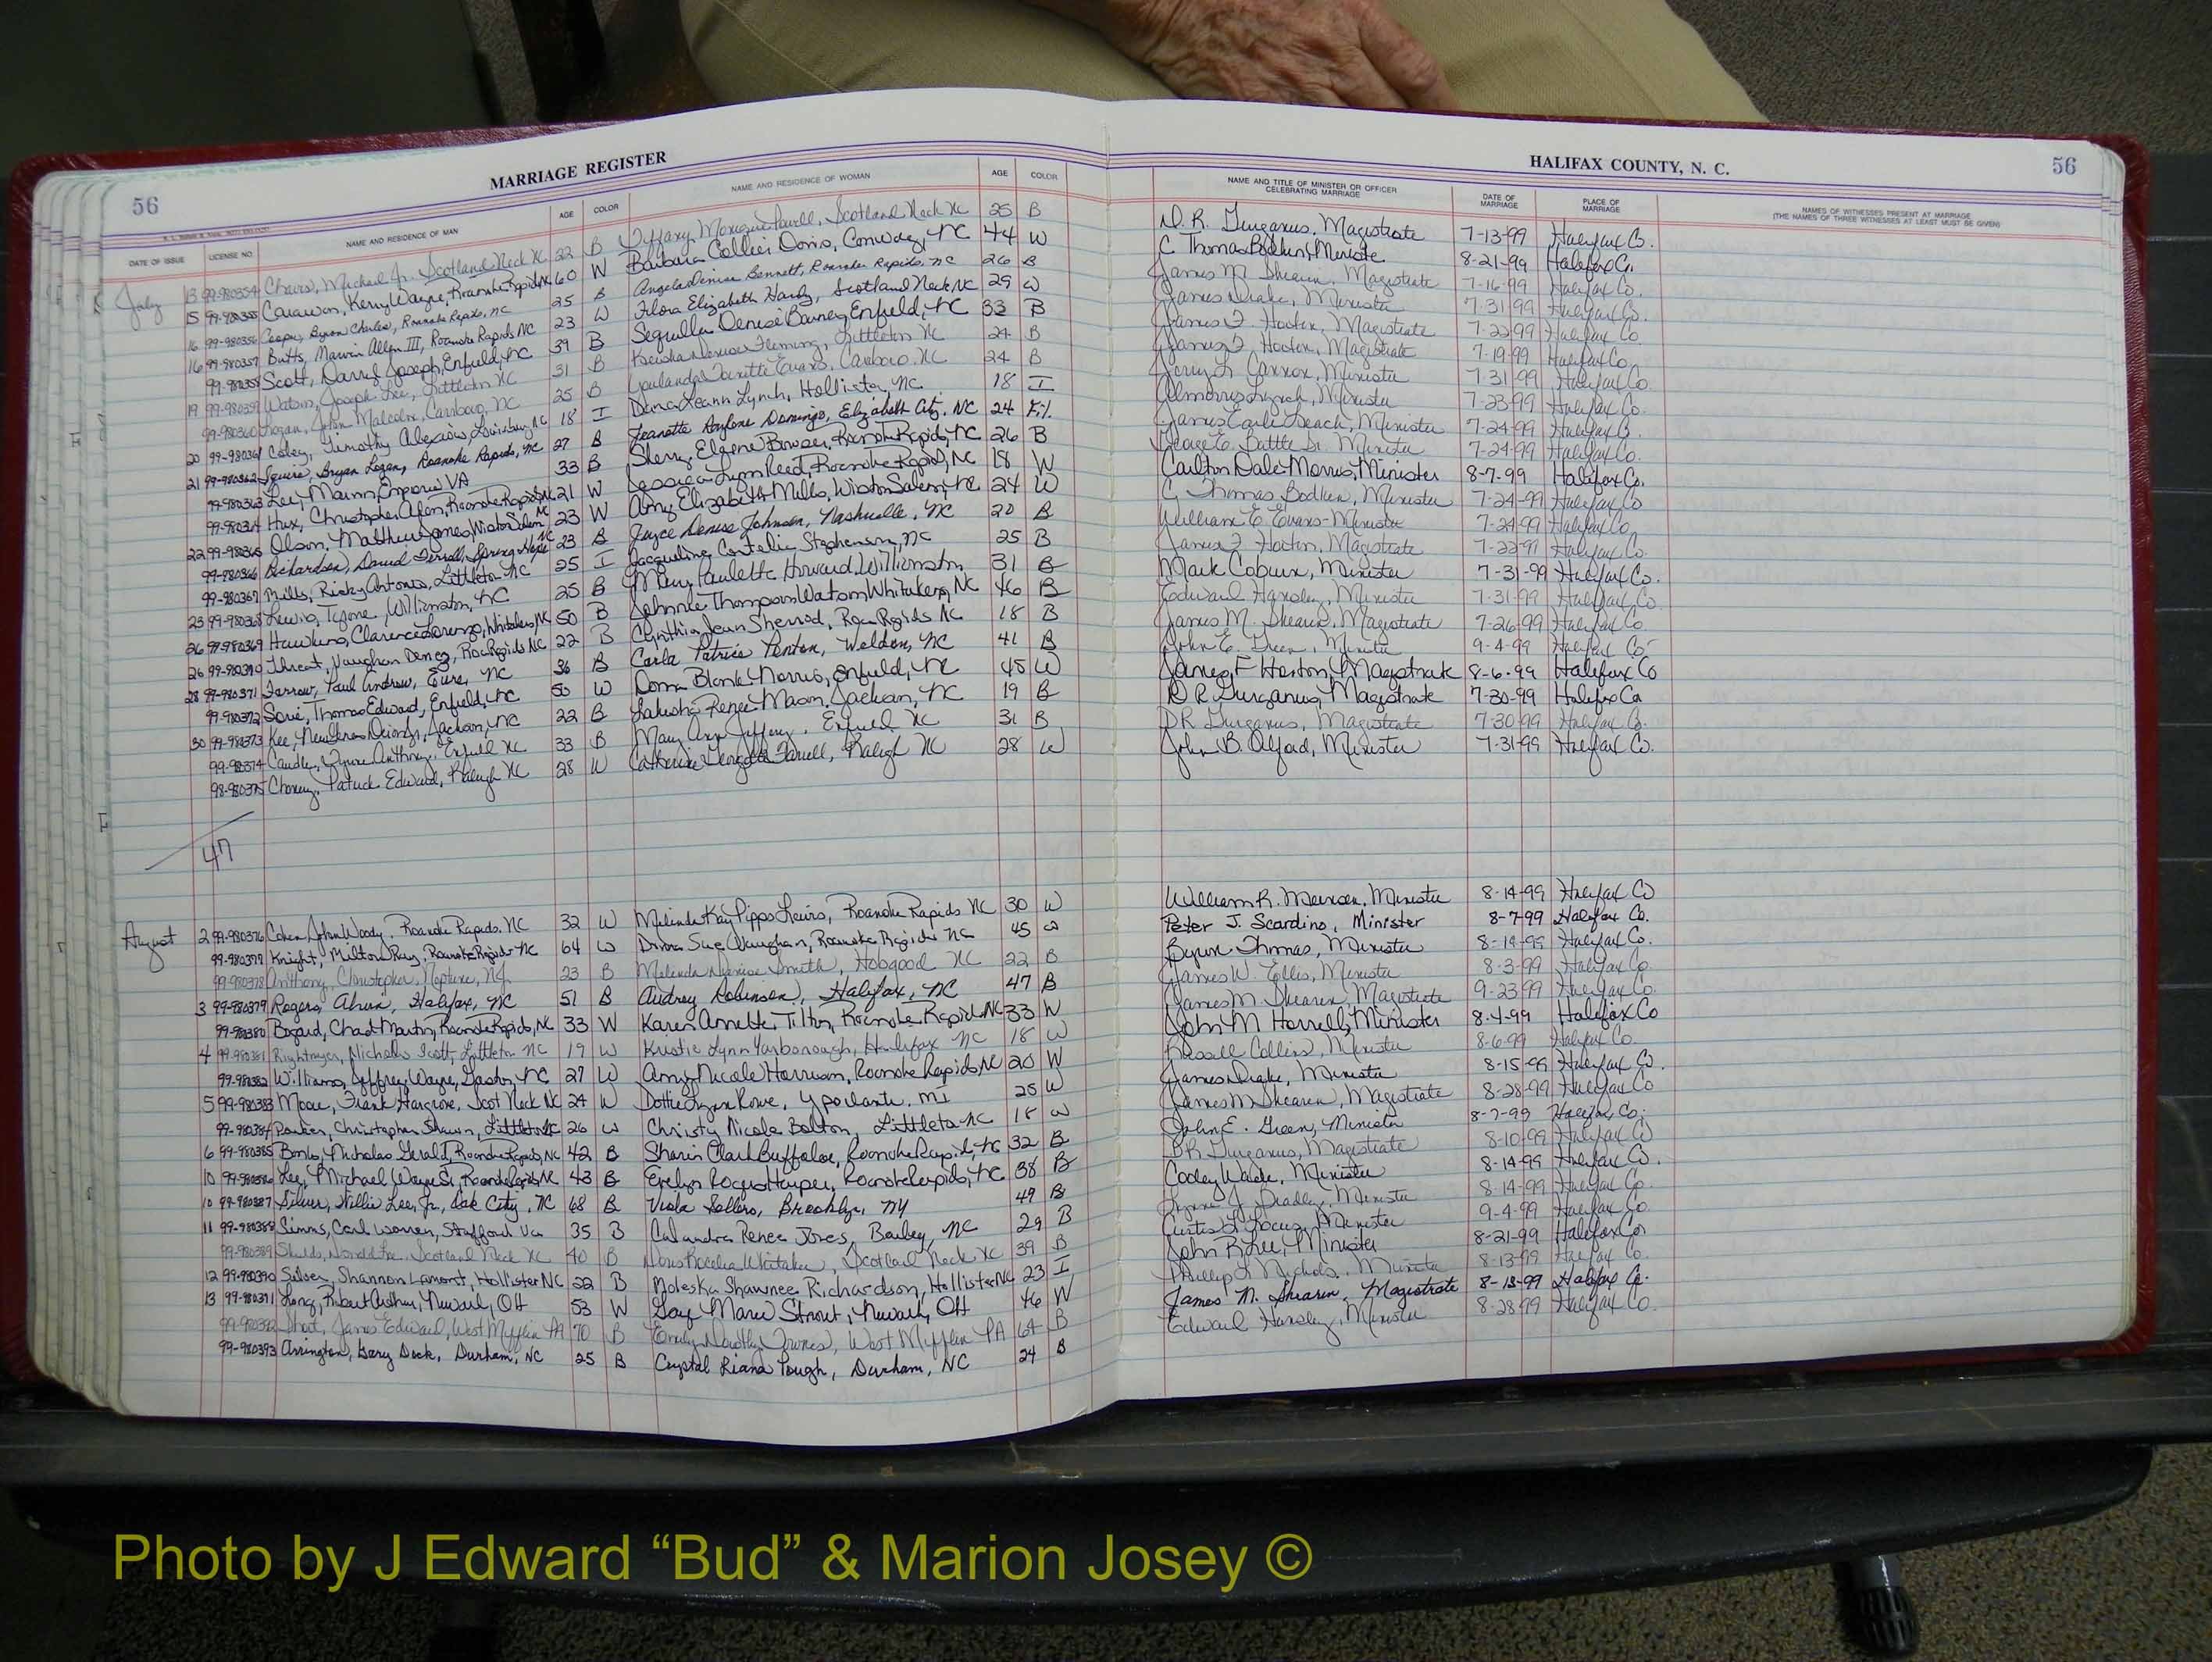 56 MARRIAGE REGISTER
DATE OF ISSUE LICENSE NO. NAME AND RESIDENCE OF MAN AGE COLOR NAME AND RESIDENCE OF WOMAN AGE COLOR
July 13 99-980354 Michael Jr. Scotland Neck NC 22 B Tiffany Powell, Scotland Neck NC 25 B
15 99-980355 Carawan, Kerry Wayne, Roanoke Rapids NC 60 W Barbara Collier Davis, Conway, NC 44 W
16 99-980356 Cooper, Byron Charles, Roanoke Rapids, NC 25 B Angela Denise Bennett, Roanoke Rapids, NC 26 B
16 99-980357 Butts, Marvin Allen III, Roanoke Rapids NC 23 W Flora Elizabeth Hardy, Scotland Neck, NC 29 W
99-980358 Scott, Darryl Joseph, Enfield, NC 39 B Denise Barnes, Enfield, NC 33 B
19 99-980359 Watson, Joseph Lee, Littleton NC 31 B Fleming, Littleton NC 24 B
99-980360 Logan, John Malcolm, NC 25 B Evans, NC 24 B
20 99-980361 Timothy Louisburg NC 18 I Dana Leann Lynch, Hollister, NC 18 I
21 99-980362 Squire, Bryan Logan, Roanoke Rapids, NC 27 B Jeanette Domingo, Elizabeth City, NC 24 Fil.
99-980363 Lee, Marvin, Emporia VA 33 B Sherry Elgene Bowser, Roanoke Rapids, NC 26 B
99-980364 Hux, Christopher Roanoke Rapids NC 21 W Jessica Lynn Reed, Roanoke Rapids, NC 18 W
22 99-980365 Olson, Matthew James, Winston Salem NC 23 W Amy Elizabeth Mills, Winston Salem, NC 24 W
99-980366 Richardson, David Terrell, Spring Hope NC 23 B Joyce Denise Johnson, Nashville, NC 20 B
99-980367 Mills, Ricky Antonio, Littleton NC 25 I Jacqueline NC 25 B
23 99-980368 Lewis, Tyrone, Williamston, NC 25 B Mary Paulette Howard, Williamston 31 B
26 99-980369 Hawkins, Clarence Lorenzo, Whitakers, NC 50 B Johnnie Thompson Watson Whitakers, NC 46 B
26 99-980370 Threat, Vaughan NC 22 B Cynthia Jean Sherrod, Roa Rapids NC 18 B
28 99-980371 Farrow, Paul Andrew, Eure, NC 36 B Carla Patrice Fenton, Weldon, NC 41 B
99-980372 Thomas Edward, Enfield, NC 50 W Donna Blanks Norris, Enfield, NC 45 W
30 99-980373 Kee, Jackson, NC 22 B Lakisha Renee Mason, Jackson, NC 19 B
99-980374 Anthony, Enfield NC 33 B Mary Ann Enfield NC 31 B
99-980375 Patrick Edward, Raleigh NC 28 W Catherine Farrell, Raleigh NC 28 W
47
August 2 99-980376 John Woody, Roanoke Rapids, NC 32 W Melinda Kay Pipps Lewis, Roanoke Rapids NC 30 W
99-980377 Knight, Milton Ray, Roanoke Rapids NC 64 W Sue Vaughan, Roanoke Rapids NC 45 W
99-980378 Anthony, Christopher, Neptune, NJ 23 B Melinda Denise Smith, Hobgood NC 22 B
3 99-980379 Rogers, Halifax, NC 51 B Audrey Robinson, Halifax, NC 47 B
99-980380 Chad Martin, Roanoke Rapids, NC 33 W Karen Annette Tilton, Roanoke Rapids NC 33 W
4 99-980381 Rightmyer, Nicholas Scott, Littleton NC 19 W Kristie Lynn Yarborough, Halifax NC 18 W
99-980382 Williams, Jeffrey Wayne, Gaston, NC 27 W Amy Nicole Harrison, Roanoke Rapids NC 20 W
5 99-980383 Moore, Frank Hargrove, Scot Neck NC 24 W Dottie Lynn Rowe, Ypsilanti, MI 25 W
99-980384 Parker, Christopher Shawn, Littleton NC 26 W Christy Nicole Bolton, Littleton NC 18 W
6 99-980385 Nicholas Gerald, Roanoke Rapids, NC 42 B Clark Buffaloe, Roanoke Rapids, NC 32 B
10 99-980386 Lee, Michael Wayne Sr, Roanoke Rapids NC 43 B Evelyn Harper, Roanoke Rapids, NC 38 B
10 99-980387 Silver, Willie Lee, Jr., Oak City, NC 68 B Viola Sellers, Brooklyn, NY 49 B
11 99-980388 Simms, Carl Warren, Stafford Va 35 B Calandra Renee Jones, Bailey, NC 29 B
99-980389 Shields, Donald Lee, Scotland Neck NC 40 B Whitaker, Scotland Neck, NC 39 B
12 99-980390 Silver, Shannon Lamont, Hollister NC 22 B Shawnee Richardson, Hollister NC 23 I
13 99-980391 Long, Robert Arthur, Newark, OH 53 W Gay Marie Strout, Newark, OH 46 W
99-980392 James Edward, West Mifflin PA 70 B Emily Dorothy West Mifflin PA 64 B
99-980393 Arrington, Gary Dock, Durham, NC 25 B Crystal Riana Pough, Durham, NC 24 B
HALIFAX COUNTY, N. C. 56
NAME AND TITLE OF MINISTER OR OFFICER CELEBRATING MARRIAGE DATE OF MARRIAGE PLACE OF MARRIAGE NAMES OF WITNESSES PRESENT AT MARRIAGE
(THE NAMES OF THREE WITNESSES AT LEAST MUST BE GIVEN)
D. R. Gurganus, Magistrate 7-13-99 Halifax Co.
C Thomas Bodkin, Minister 8-21-99 Halifax Co.
James M. Shearin, Magistrate 7-16-99 Halifax Co.
James Drake, Minister 7-31-99 Halifax Co.
James F. Horton, Magistrate 7-22-99 Halifax Co
James F. Horton, Magistrate 7-19-99 Halifax Co.
Jerry L. Cannon, Minister 7-31-99 Halifax Co.
Lynch, Minister 7-23-99 Halifax Co.
James Earl Leach, Minister 7-24-99 Halifax Co.
Battle Sr. Minister 7-24-99 Halifax Co.
Carlton Dale Morris, Minister 8-7-99 Halifax Co.
C. Thomas Bodkin, Minister 7-24-99 Halifax Co
William E. Evans-Minister 7-24-99 Halifax Co
James F. Horton, Magistrate 7-22-99 Halifax Co.
Mark Coburn, Minister 7-31-99 Halifax Co.
Edward Hansley, Minister 7-31-99 Halifax Co.
James M. Shearin, Magistrate 7-26-99 Halifax Co.
John E. Green, Minister 9-4-99 Halifax Co
James F Horton, Magistrate 8-6-99 Halifax Co
D R Gurganus, Magistrate 7-30-99 Halifax Co
D R Gurganus, Magistrate 7-30-99 Halifax Co.
John B. Alford, Minister 7-31-99 Halifax Co.
William R. Minister 8-14-99 Halifax Co
Peter J. Scardino, Minister 8-7-99 Halifax Co.
Byron Thomas, Minister 8-14-99 Halifax Co.
James W. Ellis, Minister 8-3-99 Halifax Co
James M. Shearin, Magistrate 9-23-99 Halifax Co.
John M Horrell, Minister 8-4-99 Halifax Co
Russell Collins, Minister 8-6-99 Halifax Co.
James Drake, Minister 8-15-99 Halifax Co.
James M Shearin, Magistrate 8-28-99 Halifax Co
John E. Green, Minister 8-7-99 Halifax Co.
D R Gurganus, Magistrate 8-10-99 Halifax Co
Cooley Wade, Minister 8-14-99 Halifax Co.
Bradley, Minister 8-14-99 Halifax Co.
Curtis Minister 9-4-99 Halifax Co.
John R Lee, Minister 8-21-99 Halifax Co
Phillip L Nichols, Minister 8-13-99 Halifax Co.
James M. Shearin, Magistrate 8-13-99 Halifax Co.
Edward Hansley, Minister 8-28-99 Halifax Co.
Photo by J Edward “Bud” & Marion Josey ©